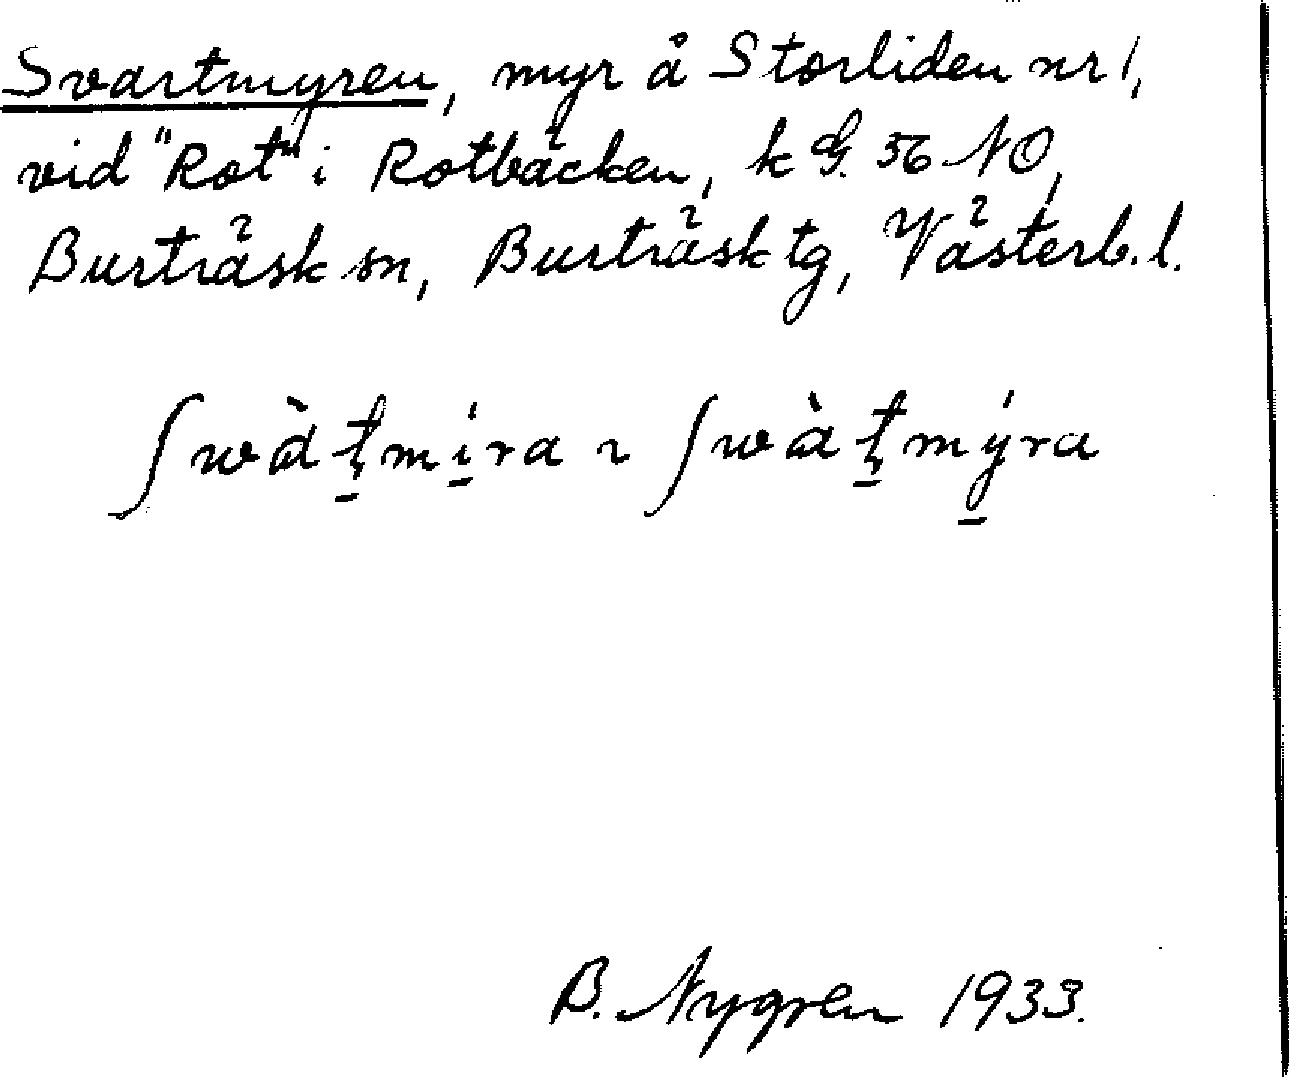 Svartmyren, myr å Storliden nr 1,
vid "Rot" i Rotbäcken, k G. 56 NO,
Burträsk sn, Burträsk tg, Västerb. l.
ʃwàṭ̠mí̠ra ~ ʃwàṭ̠mý̠ra
B. Nygren 1933.